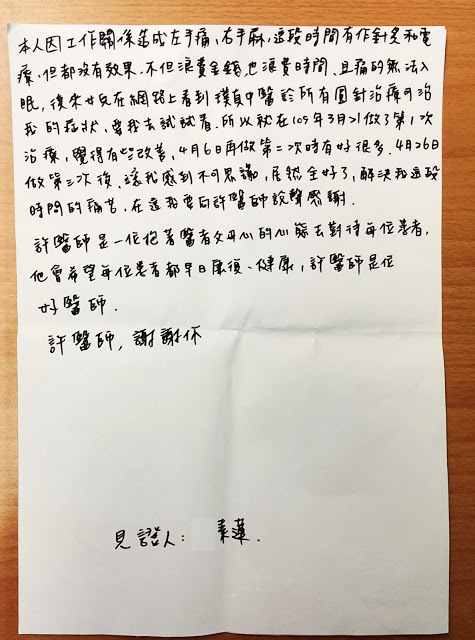 本人因工作關係造成左手痛、右手麻,這段時間有作針灸和電
療,但都沒有效果,不但浪費金錢也浪費時間、且痛的無法入
眠,後來女兒在網路上看到璞真中醫診所有圓針治療可治
我的症狀,要我去試試看.所以就在105年3月21做了第1次
治療,覺得有些改善,4月6日再做第二次時有好很多.4月26日
做第三次後、讓我感到不可思議,居然全好了,解決我這段
時間的痛苦,在這我要向許醫師說聲感謝.
許醫師是一位抱著醫者父母心的心態去對待每位患者,
他會希望每位患者都早日康復、健康,許醫師是位
好醫師.
許醫師,謝謝你
見證人: 素蓮.